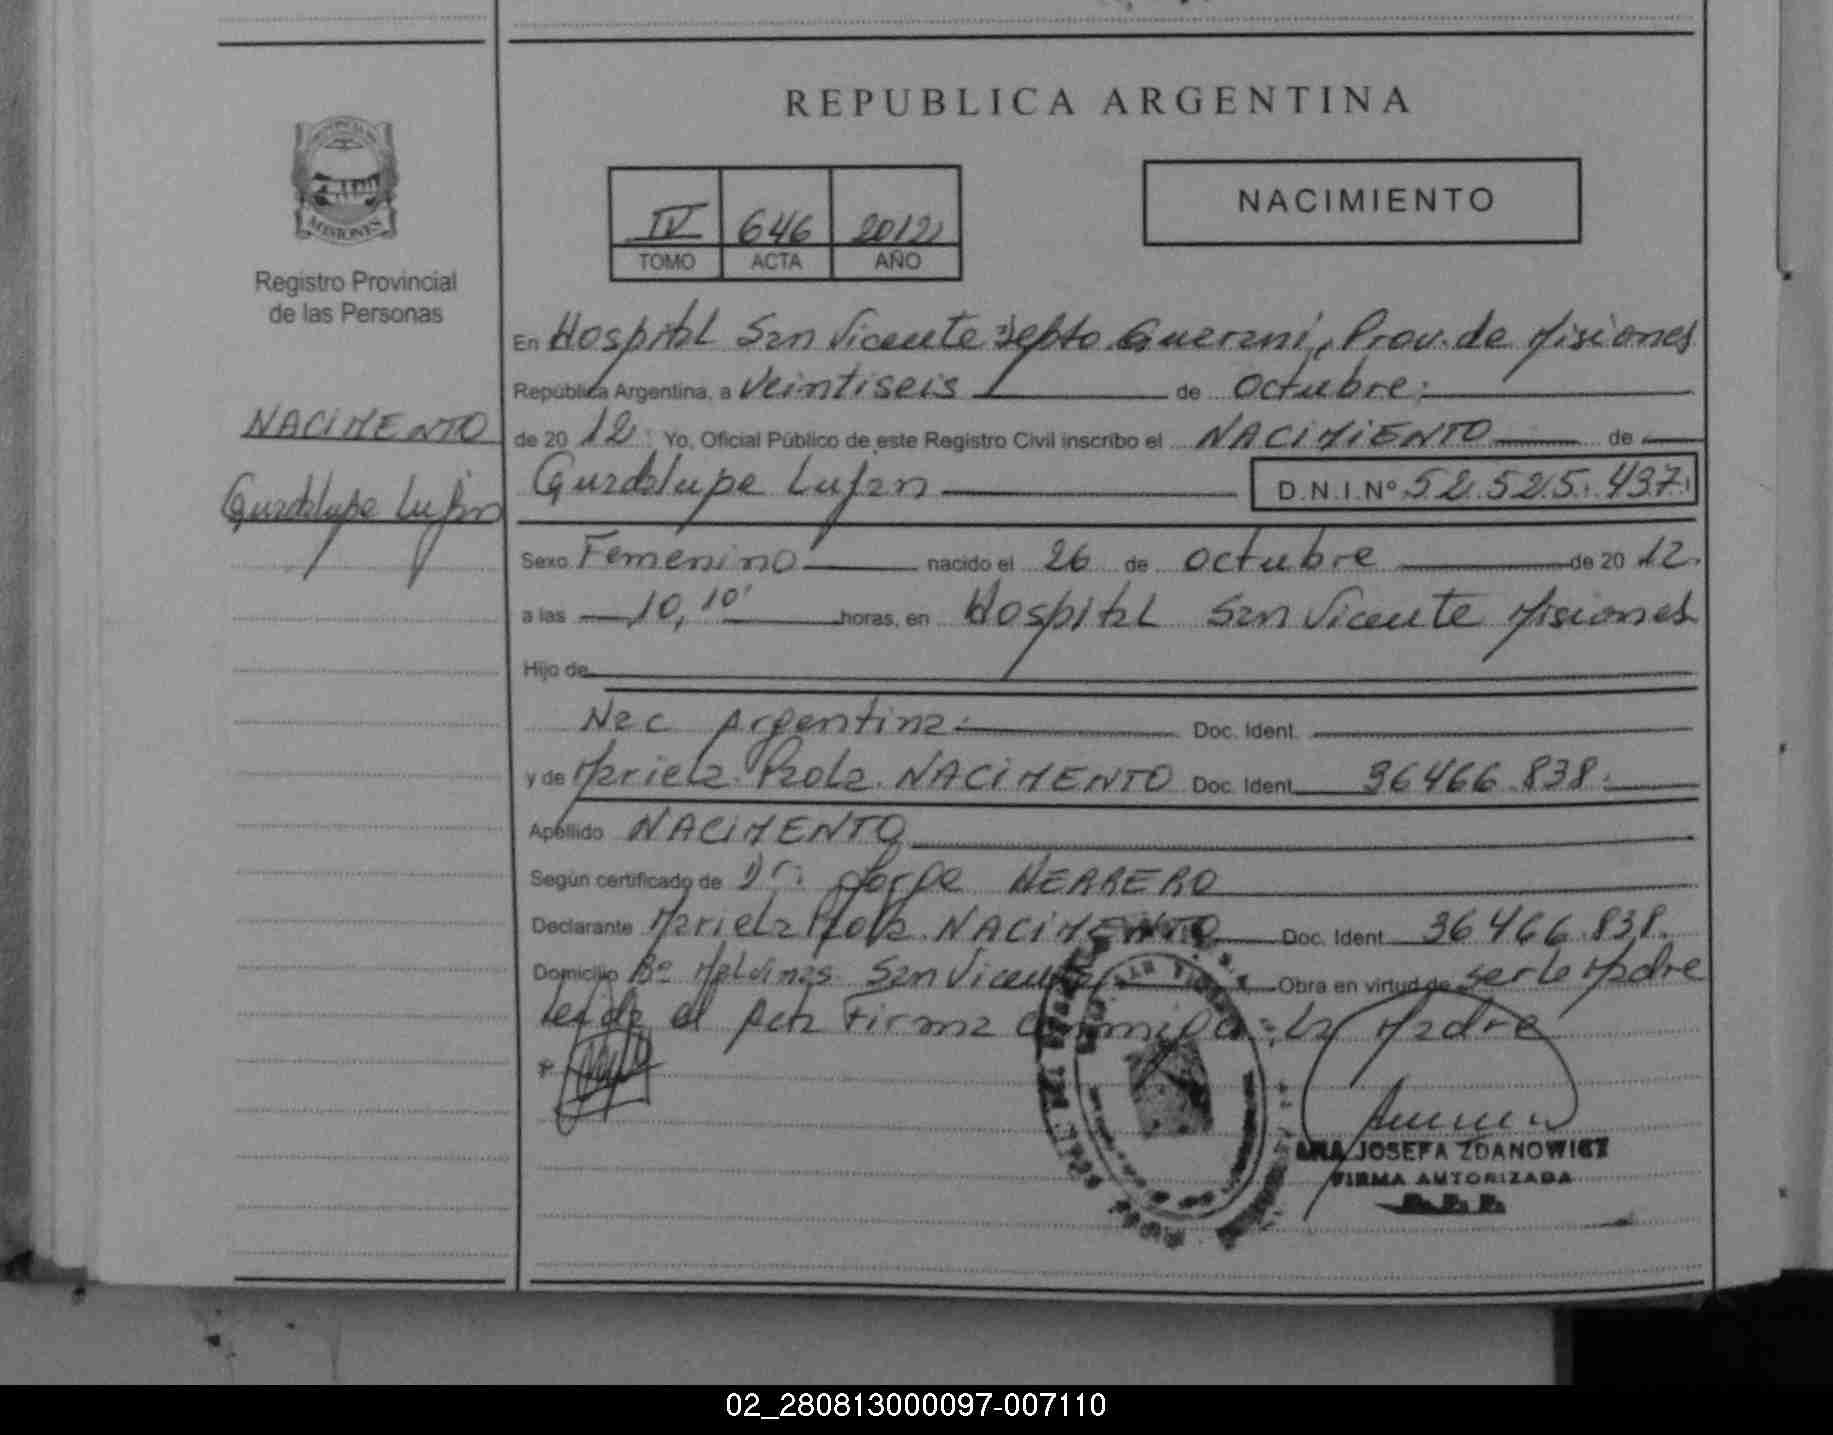 REPUBLICA ARGENTINA
NACIMIENTO
IV 646 2012
TOMO ACTA AÑO
MISIONES
Registro Provincial
de las Personas
NACIMENTO
Guadalupe Lujan
En Hospital San Vicente Depto Guarani, Prov. de Misiones
República Argentina, a Veintiseis de Octubre
de 2012 Yo, Oficial Público de este Registro Civil inscribo el NACIMIENTO de
Guadalupe Lujan D.N.I.Nº 52.525.437
Sexo Femenino nacido el 26 de octubre de 2012
a las 10,10' horas, en Hospital San Vicente Misiones
Hijo de
Nac Argentina Doc. Ident.
y de Mariela Paola NACIMENTO Doc. Ident. 36466.838
Apellido NACIMENTO
Según certificado de Dr. Jorge HERRERO
Declarante Mariela Paola NACIMENTO Doc. Ident. 36466.838
Domicilio Bº Malvinas San Vicente Obra en virtud de ser la Madre
Leida el Acta Firma conmigo La Madre
ANA JOSEFA ZDANOWICZ
FIRMA AUTORIZADA
R. P. P.
02_280813000097-007110